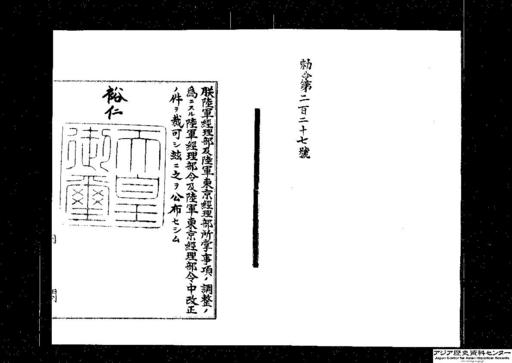 勅令第二百二十七號
朕陸軍經理部及陸軍東京經理部所掌事項ノ調整ノ
為ニスル陸軍經理部令及陸軍東京經理部令中改正
ノ件ヲ裁可シ玆ニ之ヲ公布セシム
裕仁
天皇御璽
アジア歴史資料センター
Japan Center for Asian Historical Records